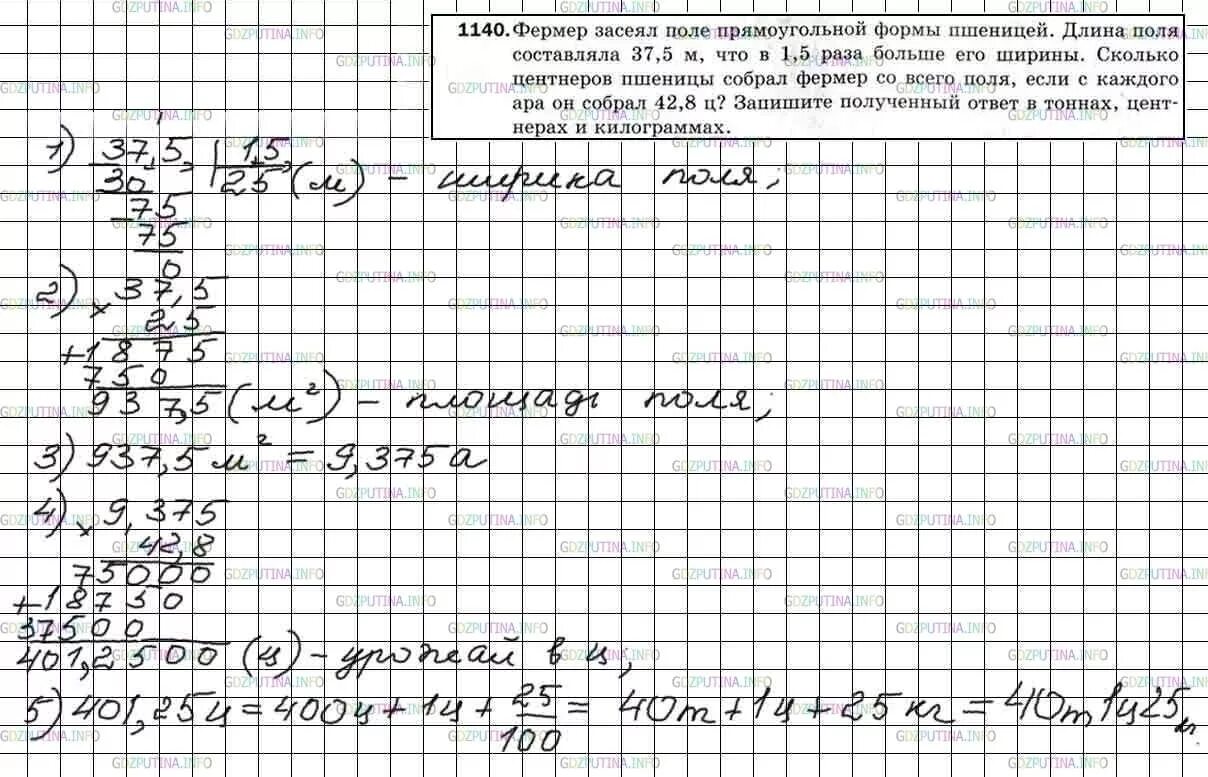 1140. Фермер засеял поле прямоугольной формы пшеницей. Длина поля
составляла 37,5 м, что в 1,5 раза больше его ширины. Сколько
центнеров пшеницы собрал фермер со всего поля, если с каждого
ара он собрал 42,8 ц? Запишите полученный ответ в тоннах, цент-
нерах и килограммах.
1) 37,5 | 1,5
30 | 25 (м) – ширина поля;
-75
75
0
2) × 37,5
25
+1875
750
937,5 (м²) – площадь поля;
3) 937,5 м² = 9,375 а
4) × 9,375
42,8
75000
+18750
37500
401,2500 (ц) – урожай в ц;
5) 401,25 ц = 400 ц + 1 ц + 25/100 = 40 т + 1 ц + 25 кг = 40 т 1 ц 25 кг.
GDZPUTINA.INFO